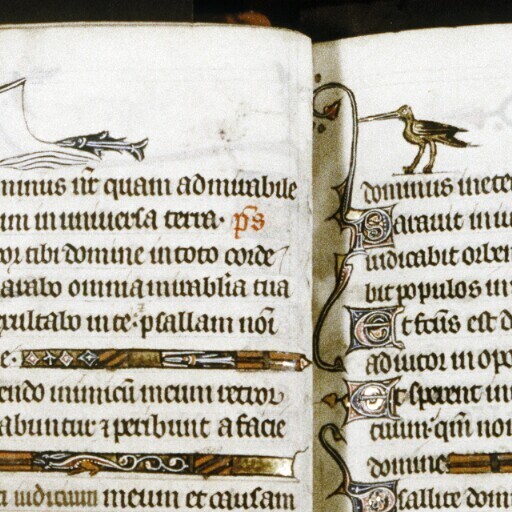 minus nr quam admirabile
um in universa terra. ps
or tibi domine in toto corde
arrabo omnia mirabilia tua
exultabo in te. psallam noi
e.
endo inimicu meum retror
abuntur ⁊ peribunt a facie
iudicium meum et causam
dominus in eter
Paravit in iu
iudicabit orbem
bit populos in
Et fcus est d
adiutor in opo
Et sperent in
tuum. qm non
domine
Psallite domi